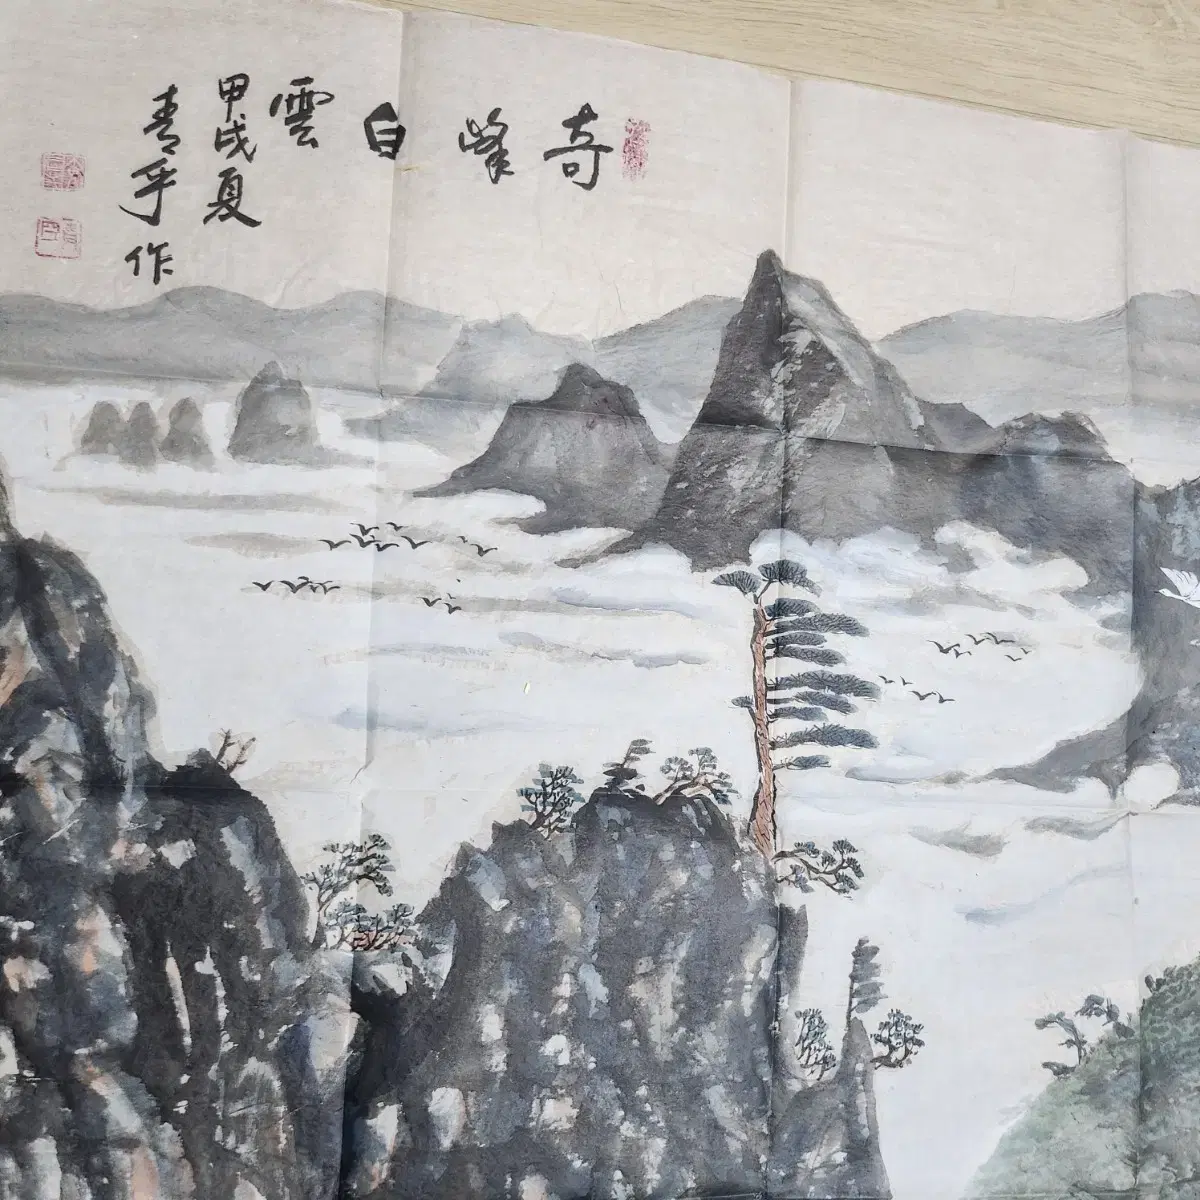 奇峰白雲
甲戌夏
青乎作